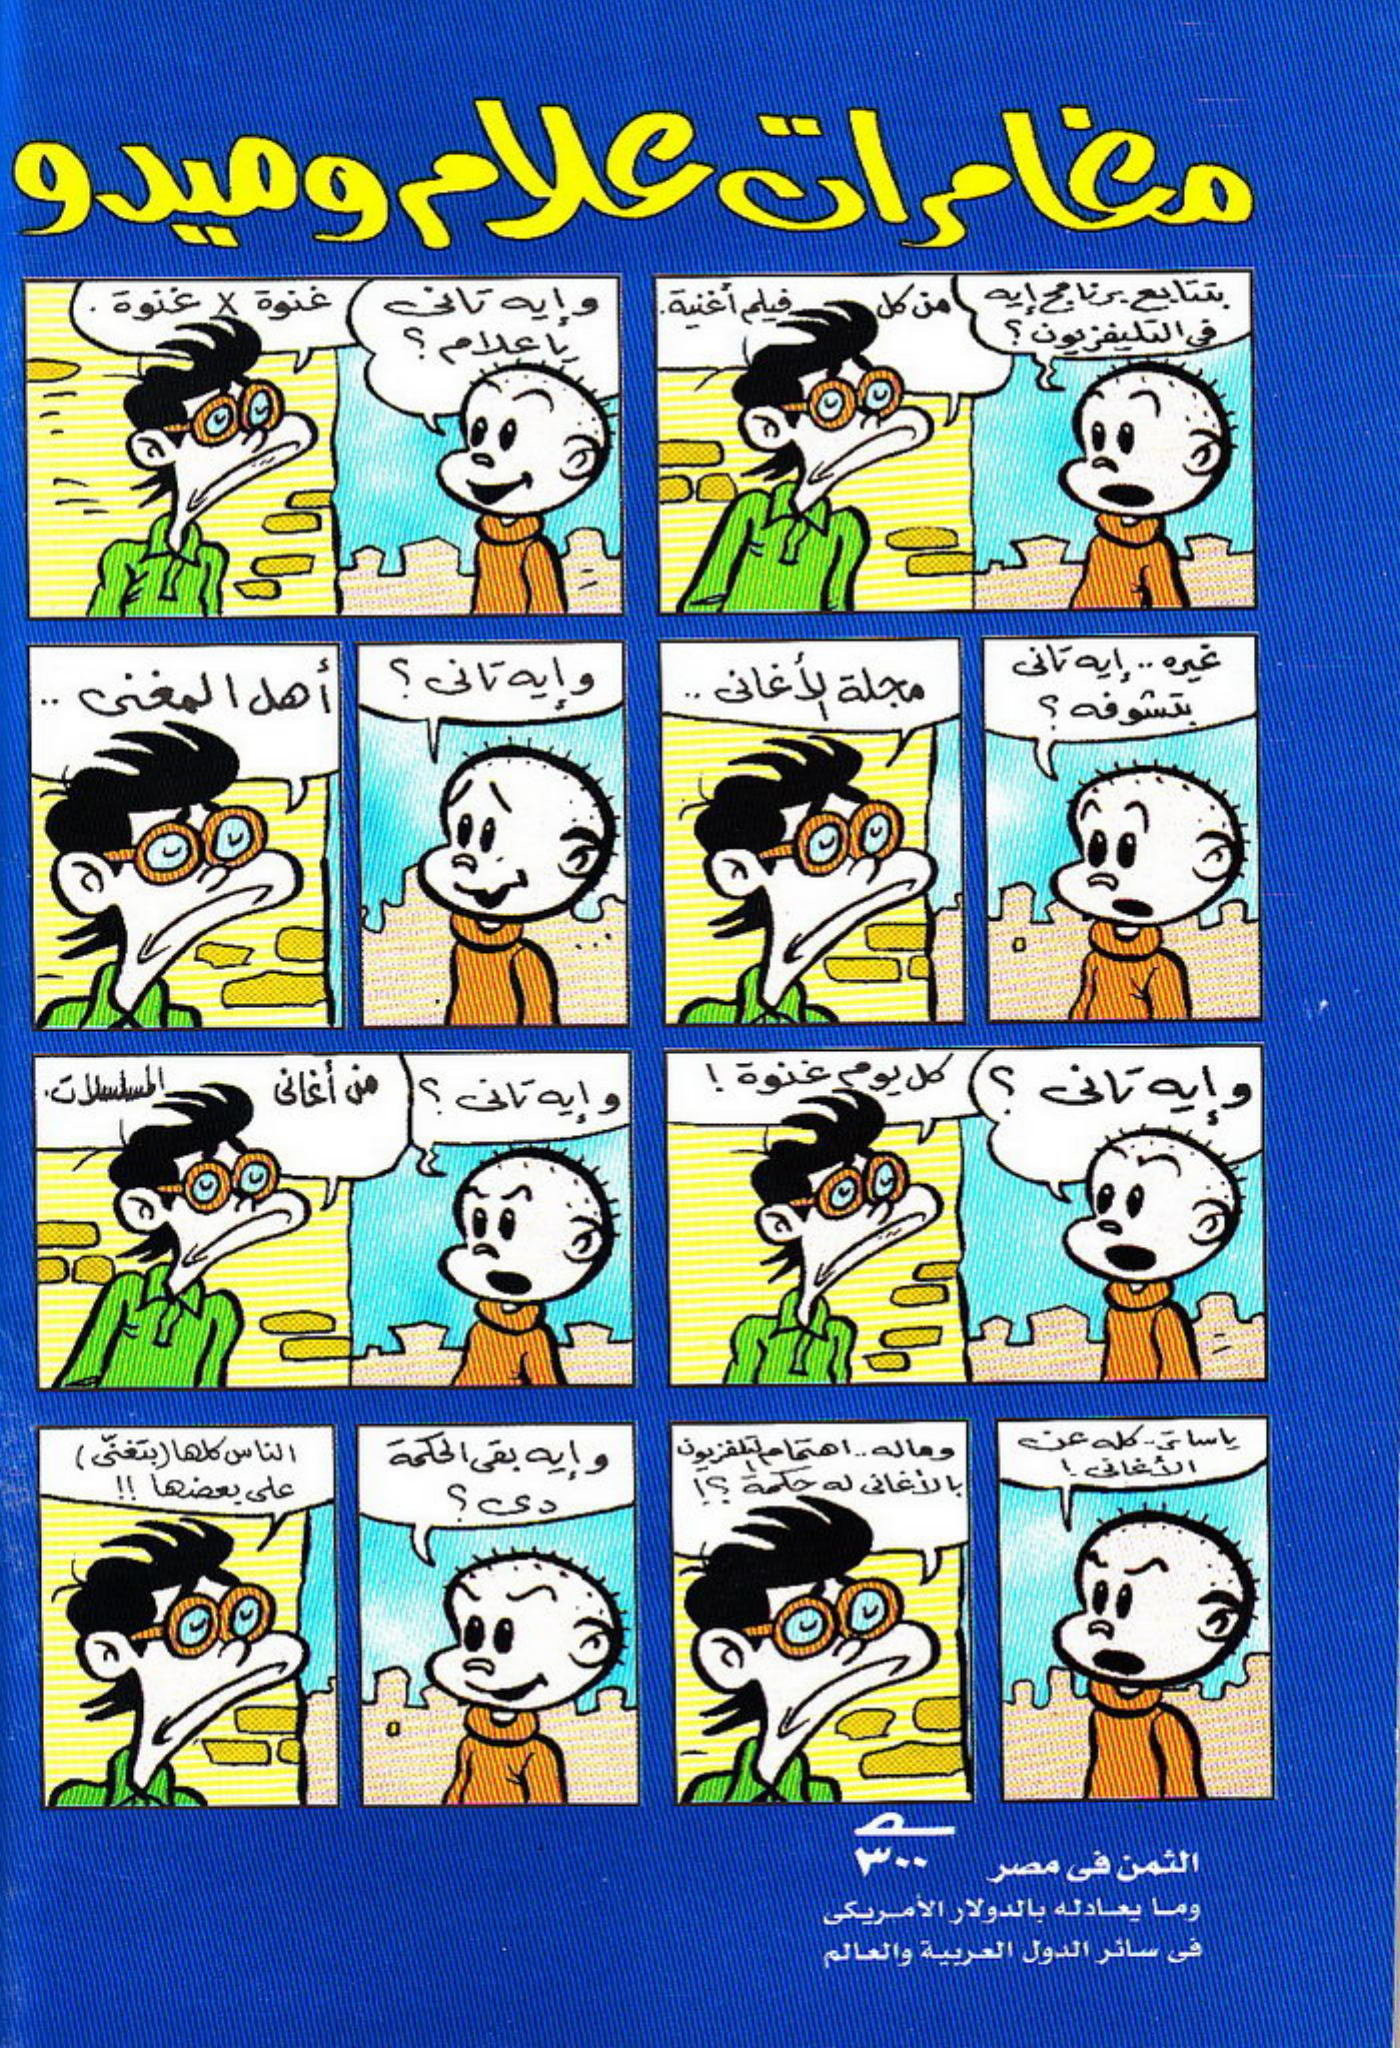 مغامرات علام وميدو
بتتابع برنامج إيه
فى التليفزيون؟
من كل فيلم أغنية.
وإيه تانى
يا علام؟
غنوة X غنوة.
غيره.. إيه تانى
بتشوفه؟
مجلة الأغانى..
وإيه تانى؟
أهل المغنى..
وإيه تانى؟
كل يوم غنوة!
وإيه تانى؟
من أغانى المسلسلات.
ياساتر.. كله عن
الأغانى!
وماله.. اهتمام التليفزيون
بالأغانى له حكمة؟!
وإيه بقى الحكمة
دى؟
الناس كلها (بتغنّى)
على بعضها!!
الثمن فى مصر ٣٠٠
وما يعادله بالدولار الأمريكى
فى سائر الدول العربية والعالم